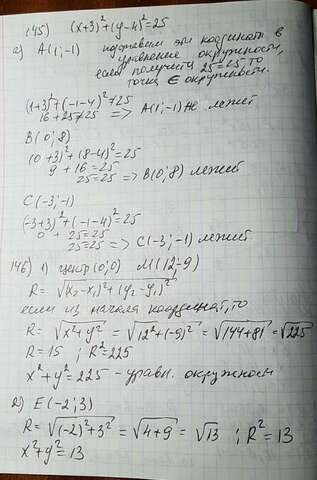 145) (x+3)²+(y-4)²=25
а) A(1;-1) подставим эти координаты в
уравнение окружности,
если получится 25=25, то
точка ∈ окружности.
(1+3)²+(-1-4)²≠25
16+25≠25 => A(1;-1) не лежит
B(0;8)
(0+3)²+(8-4)²=25
9+16=25
25=25 => B(0;8) лежит
C(-3;-1)
(-3+3)²+(-1-4)²=25
0+25=25
25=25 => C(-3;-1) лежит
146) 1) центр (0;0) M(12;-9)
R=√(x₂-x₁)²+(y₂-y₁)²
если из начала координат, то
R=√x²+y²=√12²+(-9)²=√144+81=√225
R=15; R²=225
x²+y²=225 - уравн. окружност
2) E(-2;3)
R=√(-2)²+3²=√4+9=√13; R²=13
x²+y²=13